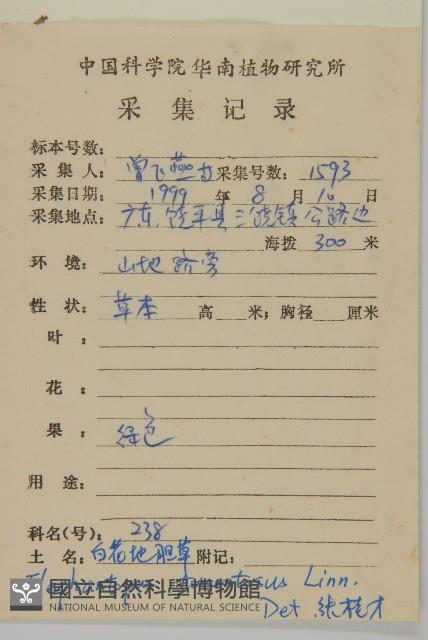 中国科学院华南植物研究所
采集记录
标本号数:
采集人: 曾飞燕 采集号数: 1593
采集日期: 1999 年 8 月 10 日
采集地点: 广东, 饶平县三饶镇公路边
海拨 300 米
环境: 山地路旁
性状: 草本 高 米; 胸径 厘米
叶:
花:
果: 绿色
用途:
科名(号): 238
土名: 白花地胆草 附记:
Linn.
Det 张桂才
國立自然科學博物館
NATIONAL MUSEUM OF NATURAL SCIENCE